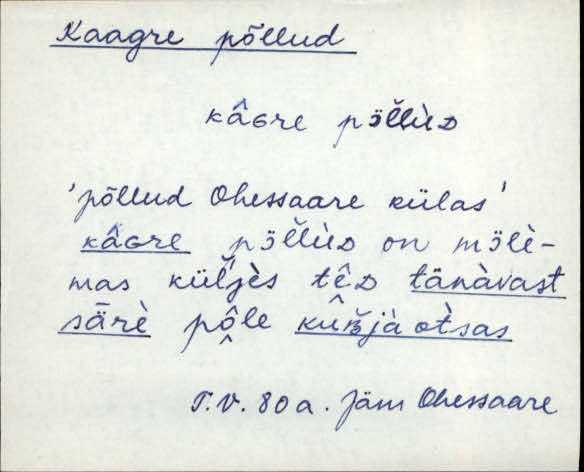 Kaagre põllud
kâɢre pɜ̈l̆l̆ùᴅ
'põllud Ohessaare külas'
kâɢre pɜ̈l̆l̆ùᴅ on mɜ̈lè-
mas külʹjès têᴅ tänàvast
särè pô̭le otsas
T.V. 80 a. Jäm Ohessaare